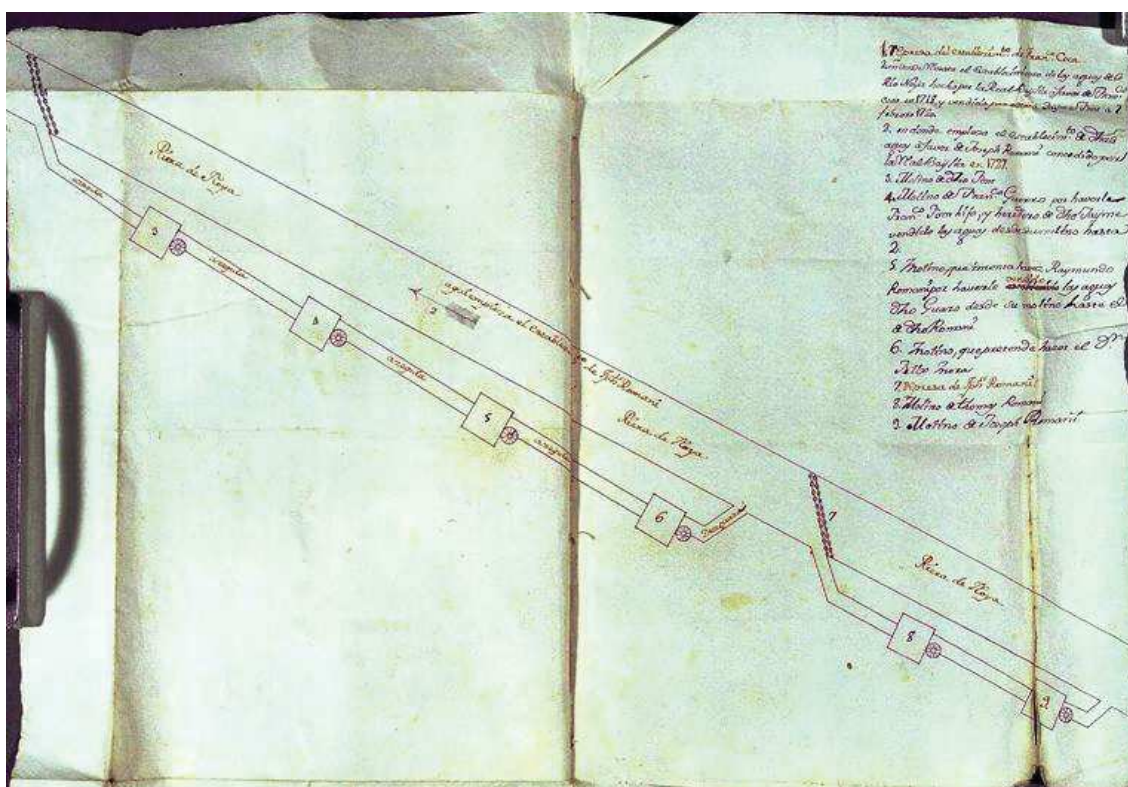 Presa del establecim.to de Fran.co Coca
el establecimiento de las aguas de
Rio Noya hecho por la Real Baylia a favor de Fran.co
Coca en y vendido por a Jayme Pom a 7
febrero
2. en donde empiesa el establecim.to de dhas
aguas a favor de Joseph Romaní concedido por
la Real Baylia en 1727.
3. Molino de dho Pom
4. Molino de Fran.co Guarro por haverle
Fran.co Pom hijo, y heredero de dho Jayme
vendido las aguas desde su molino hasta
2.
5. Molino, que intenta hazer Raymundo
Romaní por haverle vendido las aguas
dho Guarro desde su molino hasta el
de dho Romaní
6. Molino, que pretende hazer el
7. Presa de Jph Romaní
8. Molino de thomas Romaní
9. Molino de Joseph Romaní
Riera de Noya
azequia
3
azequia
4
2
aqui empieza el establecim.to de Jph Romaní
azequia
5
Riera de Noya
azequia
6
Desaguero
7
Riera de Noya
8
9